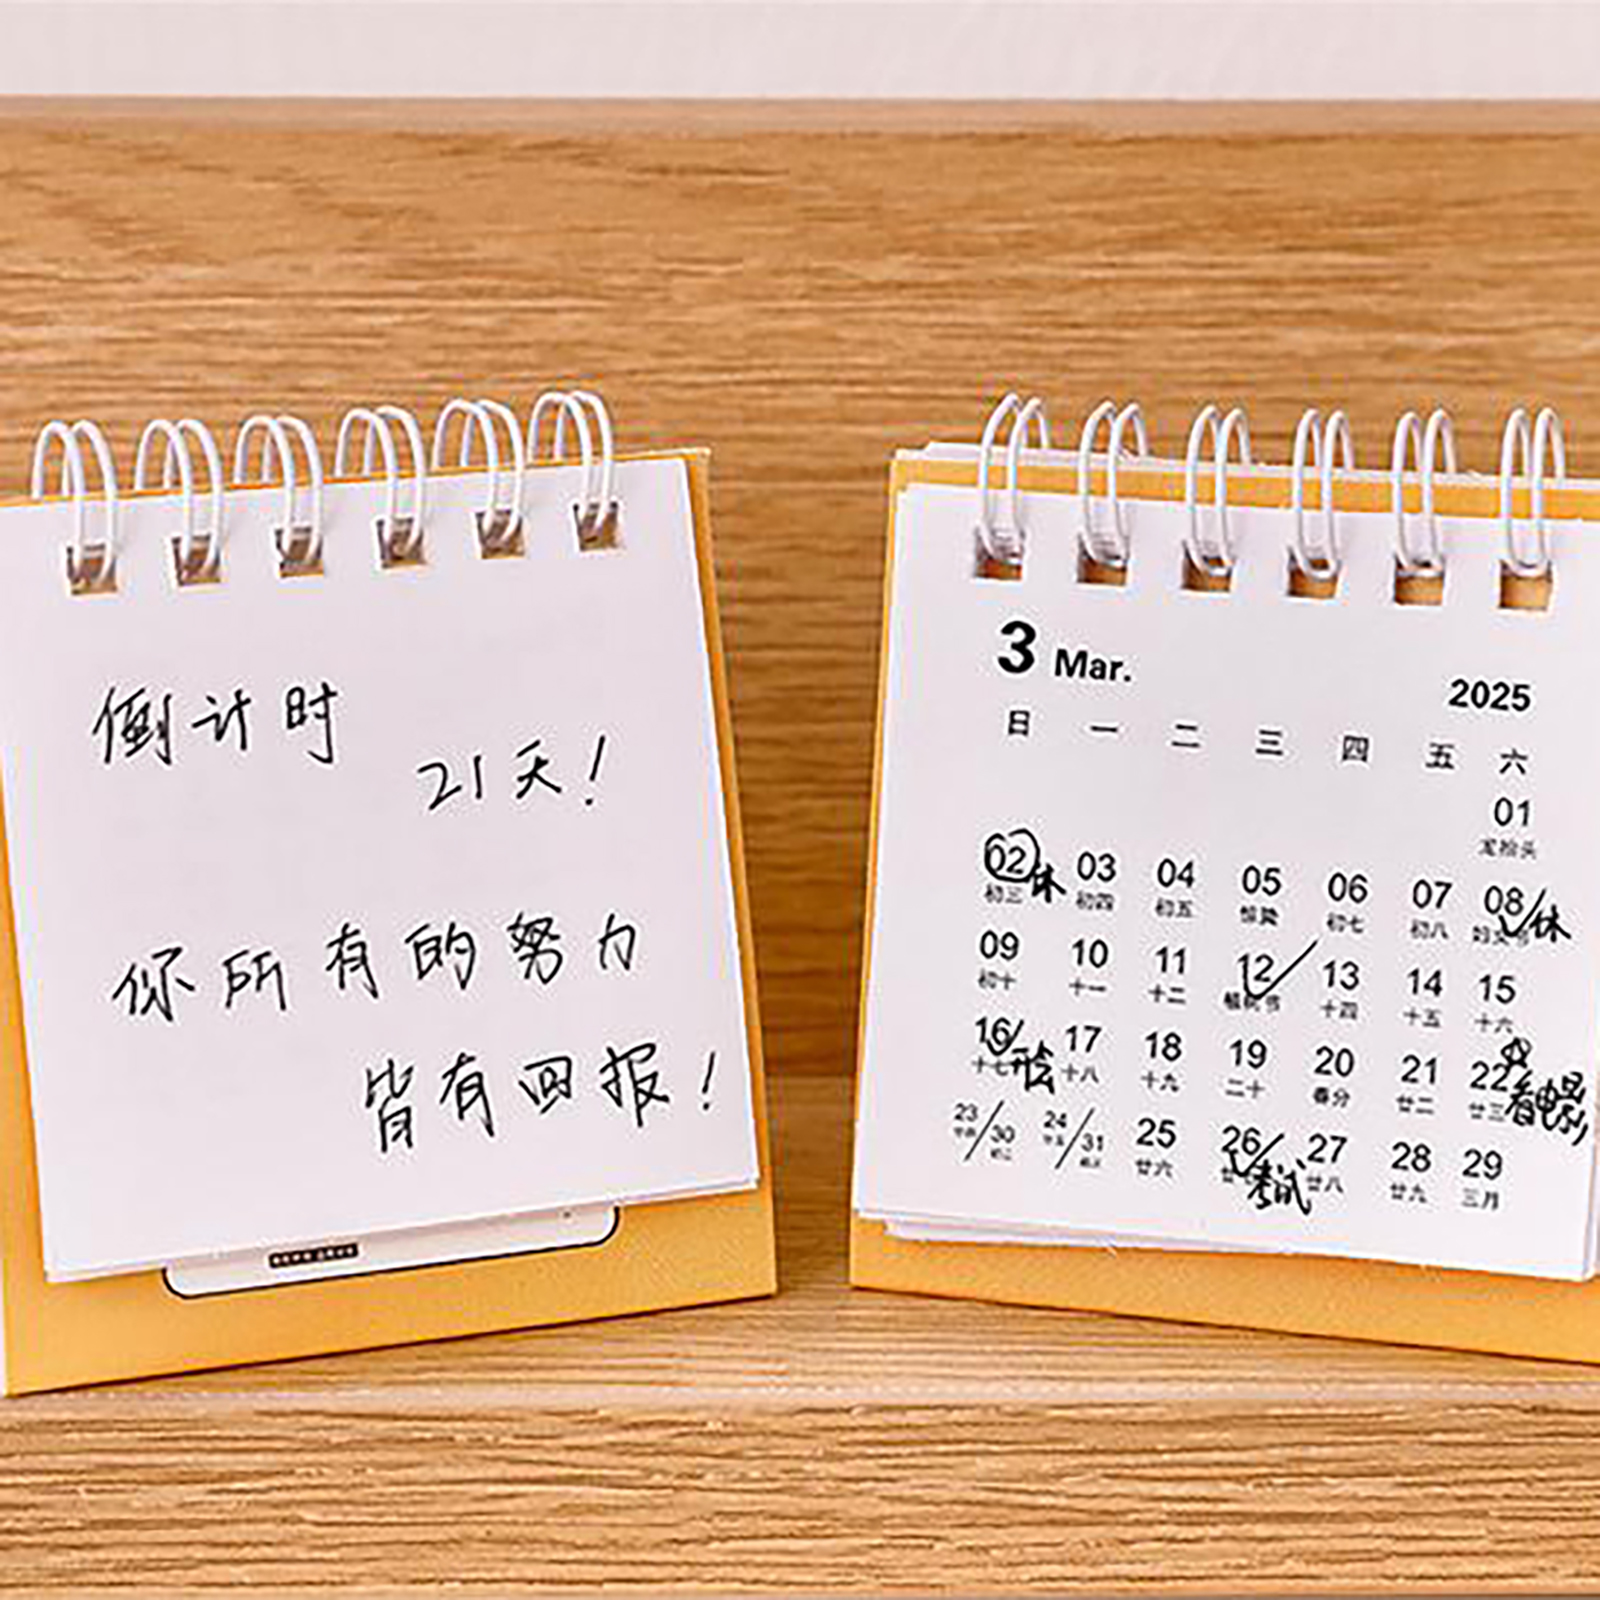 倒计时
21天!
你所有的努力
皆有回报!
3 Mar.
2025
日 一 二 三 四 五 六
01
龙抬头
02 休 03 04 05 06 07 08 休
初三 初四 初五 惊蛰 初七 初八 妇女节
09 10 11 12 13 14 15
初十 十一 十二 植树节 十四 十五 十六
16 开会 17 18 19 20 21 22 看电影
十七 十八 十九 二十 春分 廿二 廿三
23/30 24/31 25 26 考试 27 28 29
廿六 廿七 廿八 廿九 三月